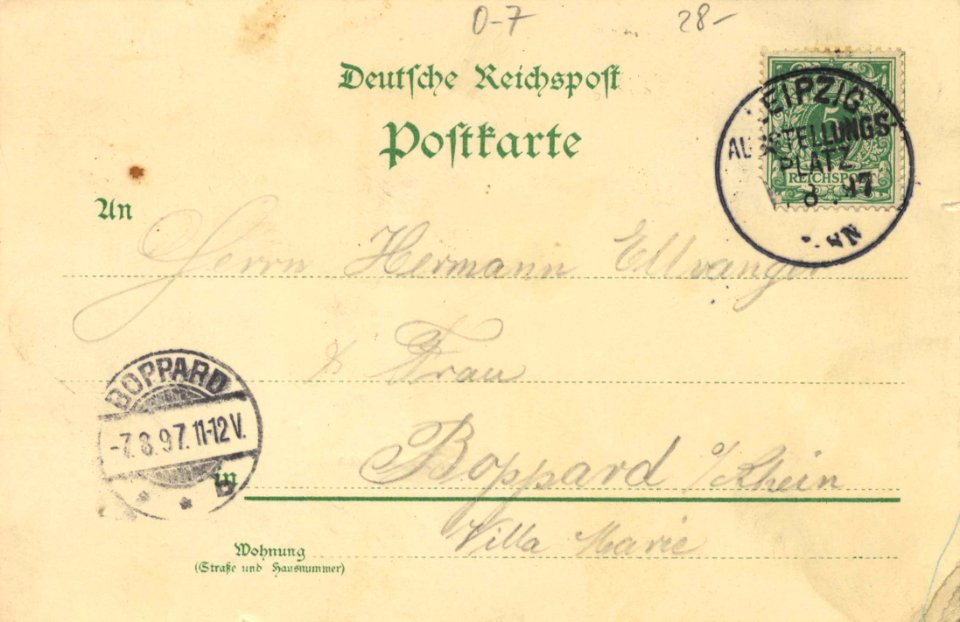 0-7 28-
Deutsche Reichspost
Postkarte
5
REICHSPOST
LEIPZIG
AUSSTELLUNGS-
PLATZ
8 97
An
Herrn Hermann Ellwanger
& Frau
BOPPARD
-7.8.97.11-12V.
in
Boppard a/Rhein
Wohnung
(Straße und Hausnummer)
Villa Marie